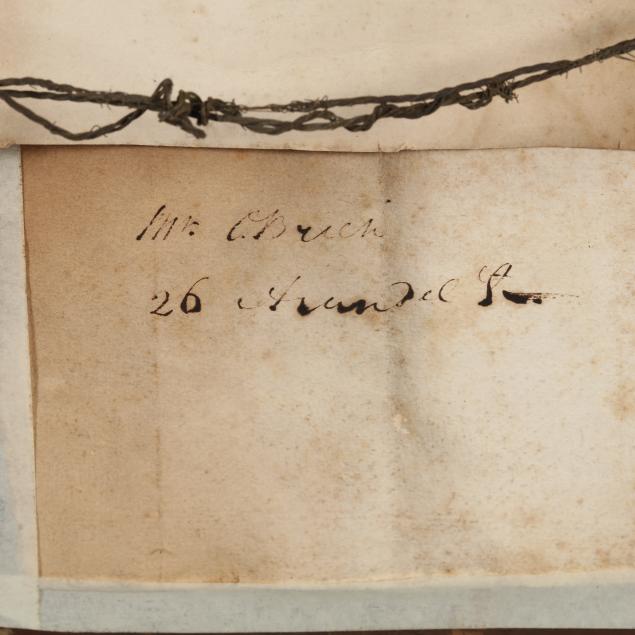 Mr. OBrien
26 Arundel St